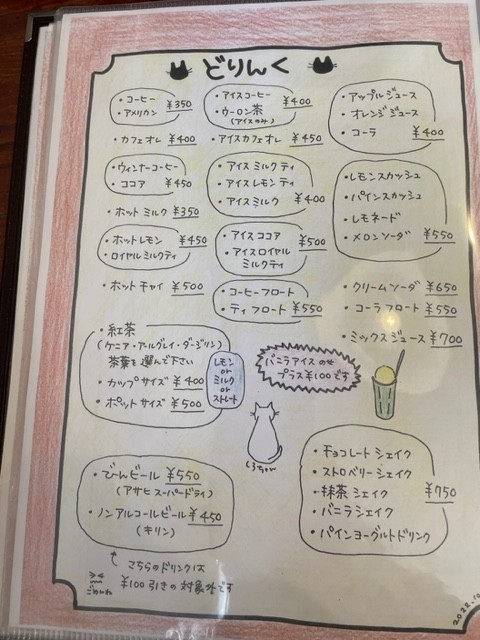 どりんく
・コーヒー
・アメリカン
¥350
・カフェオレ ¥400
・ウィンナーコーヒー
・ココア ¥450
・ホットミルク ¥350
・ホットレモン ¥450
・ロイヤルミルクティ
・ホットチャイ ¥500
・紅茶
(ケニア・アールグレイ・ダージリン)
茶葉を選んで下さい
・カップサイズ ¥400
・ポットサイズ ¥500
レモン
or
ミルク
or
ストレート
・アイスコーヒー
・ウーロン茶
(アイスのみ)
¥400
・アイスカフェオレ ¥450
・アイスミルクティ
・アイスレモンティ
・アイスミルク ¥400
・アイスココア
・アイスロイヤル
ミルクティ
¥500
・コーヒーフロート
・ティフロート ¥550
・アップルジュース
・オレンジジュース
・コーラ ¥400
・レモンスカッシュ
・パインスカッシュ
・レモネード
・メロンソーダ ¥550
・クリームソーダ ¥650
・コーラフロート ¥550
・ミックスジュース ¥700
バニラアイスのせ
プラス¥100です
しろちゃん
・びんビール ¥550
(アサヒスーパードライ)
・ノンアルコールビール ¥450
(キリン)
こちらのドリンクは
¥100引きの対象外です
ごめんね
・チョコレートシェイク
・ストロベリーシェイク
・抹茶シェイク
・バニラシェイク
・パインヨーグルトドリンク
¥750